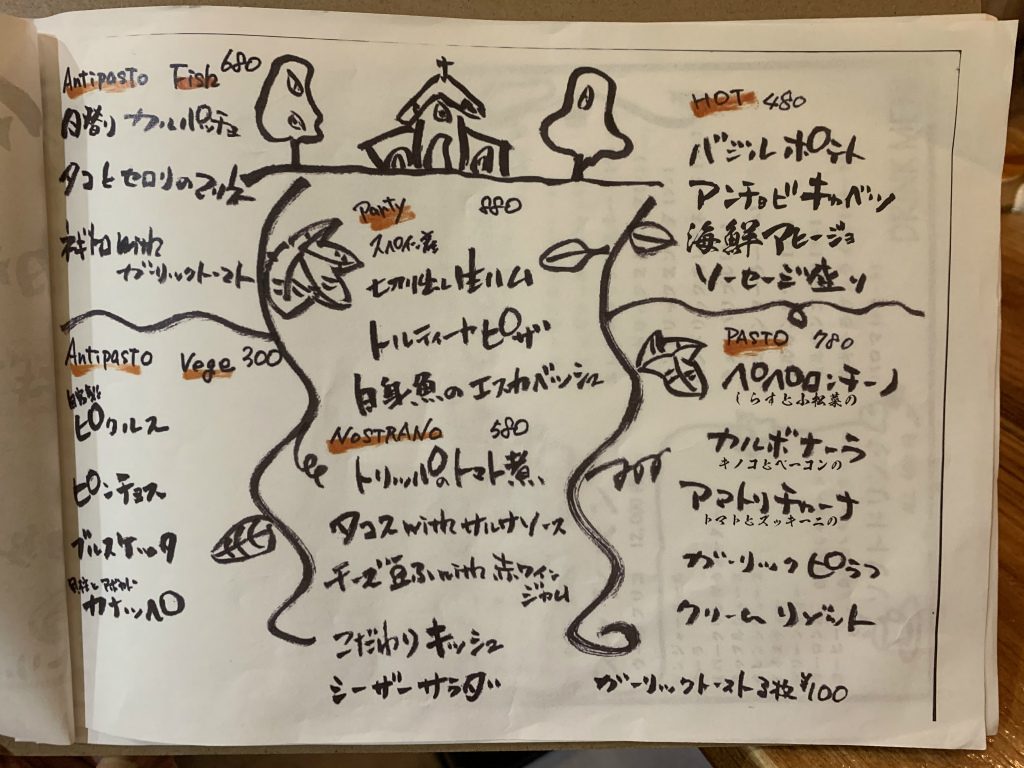 Antipasto Fish 680
日替り カルパッチョ
タコとセロリのマリネ
ネギトロwith
ガーリックトースト
Antipasto Vege 300
自家製
ピクルス
ピンチョス
ブルスケッタ
カナッペ
Party 880
スペイン産
切り出し生ハム
トルティーヤピザ
白身魚のエスカベッシュ
NOSTRANO 580
トリッパのトマト煮
タコスwithサルサソース
チーズ豆ふwith赤ワイン
ジャム
こだわりキッシュ
シーザーサラダ
HOT 480
バジルポテト
アンチョビキャベツ
海鮮アヒージョ
ソーセージ盛り
PASTO 780
ペペロンチーノ
しらすと小松菜の
カルボナーラ
キノコとベーコンの
アマトリチャーナ
トマトとズッキーニの
ガーリックピラフ
クリームリゾット
ガーリックトースト3枚¥100